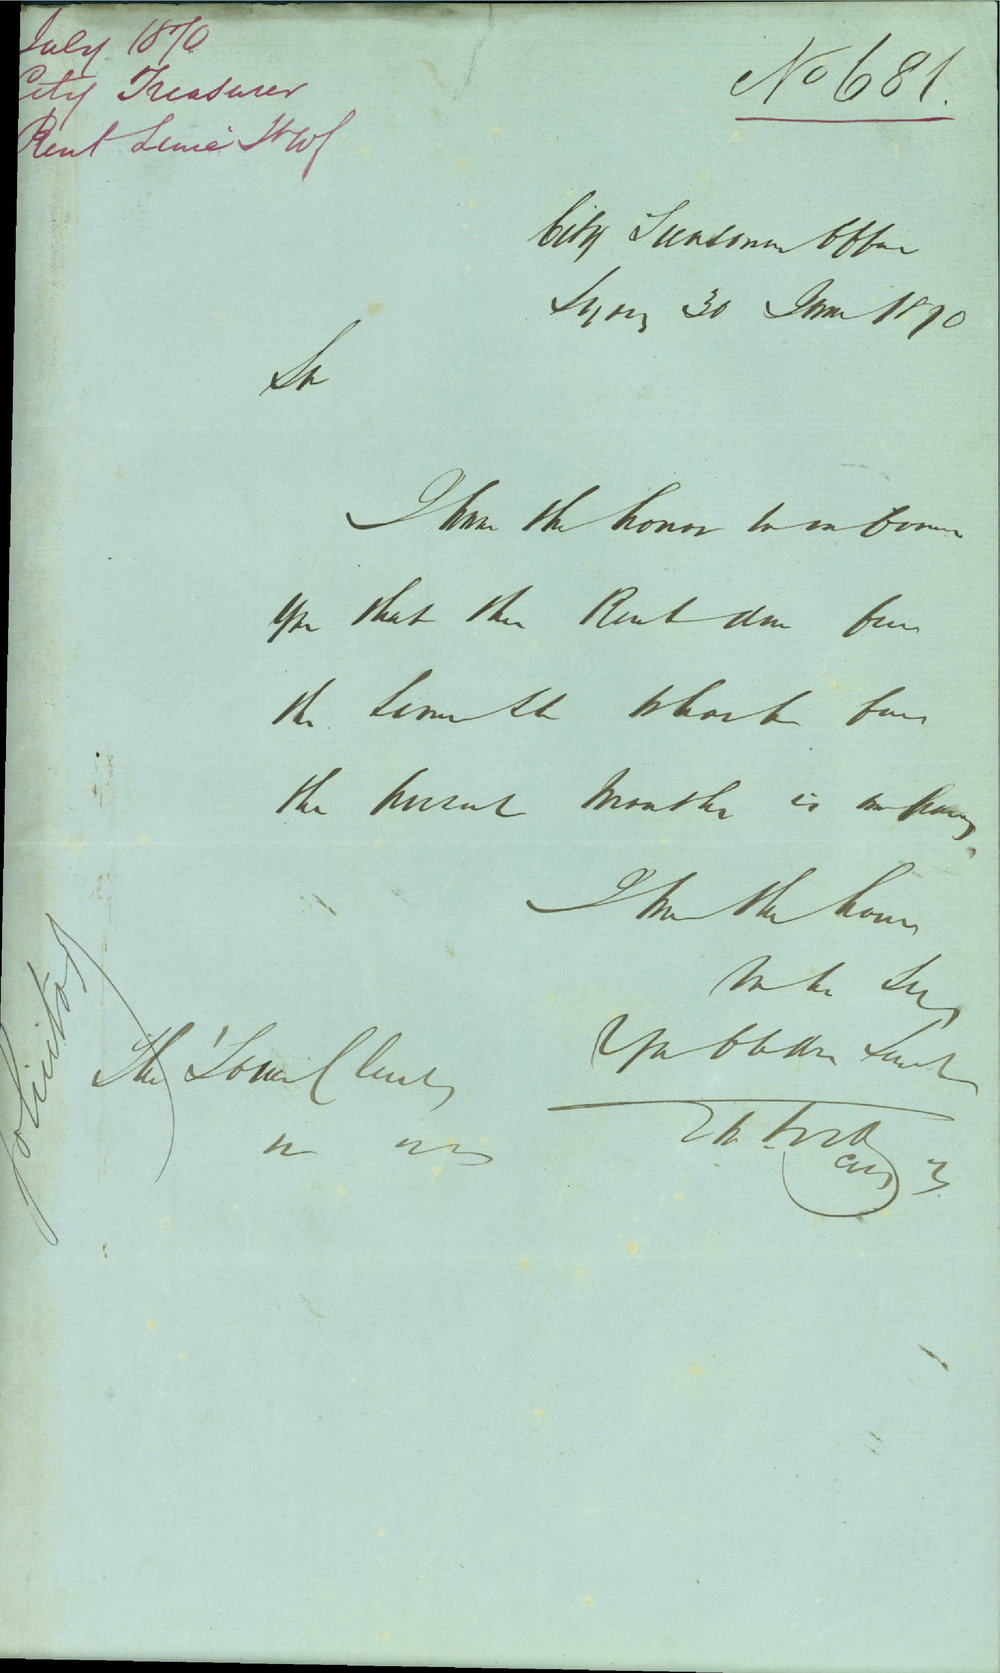 July 1870
City Treasurer
Rent Lime St Wf
No 681.
City Treasurer Office
Sydney 30 June 1870
Sir
I have the honor to inform
you that the Rent due for
the Lime St Wharf for
the present Month is unpaid
I have the honor
to be Sir
Your Obedient Servant
City
The Town Clerk
Solicitor